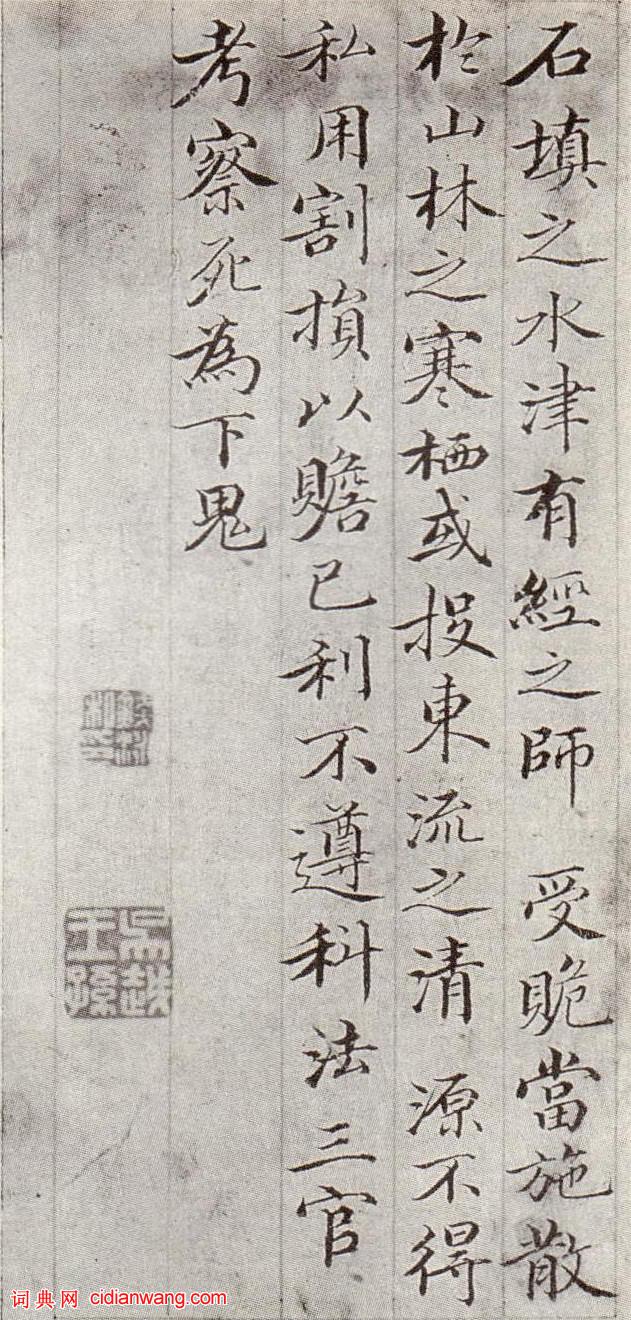 石填之水津有經之師受賄當施散
於山林之寒栖或投東流之清源不得
私用割損以贍已利不遵科法三官
考察死為下鬼
吳越王孫
词典网 cidianwang.com